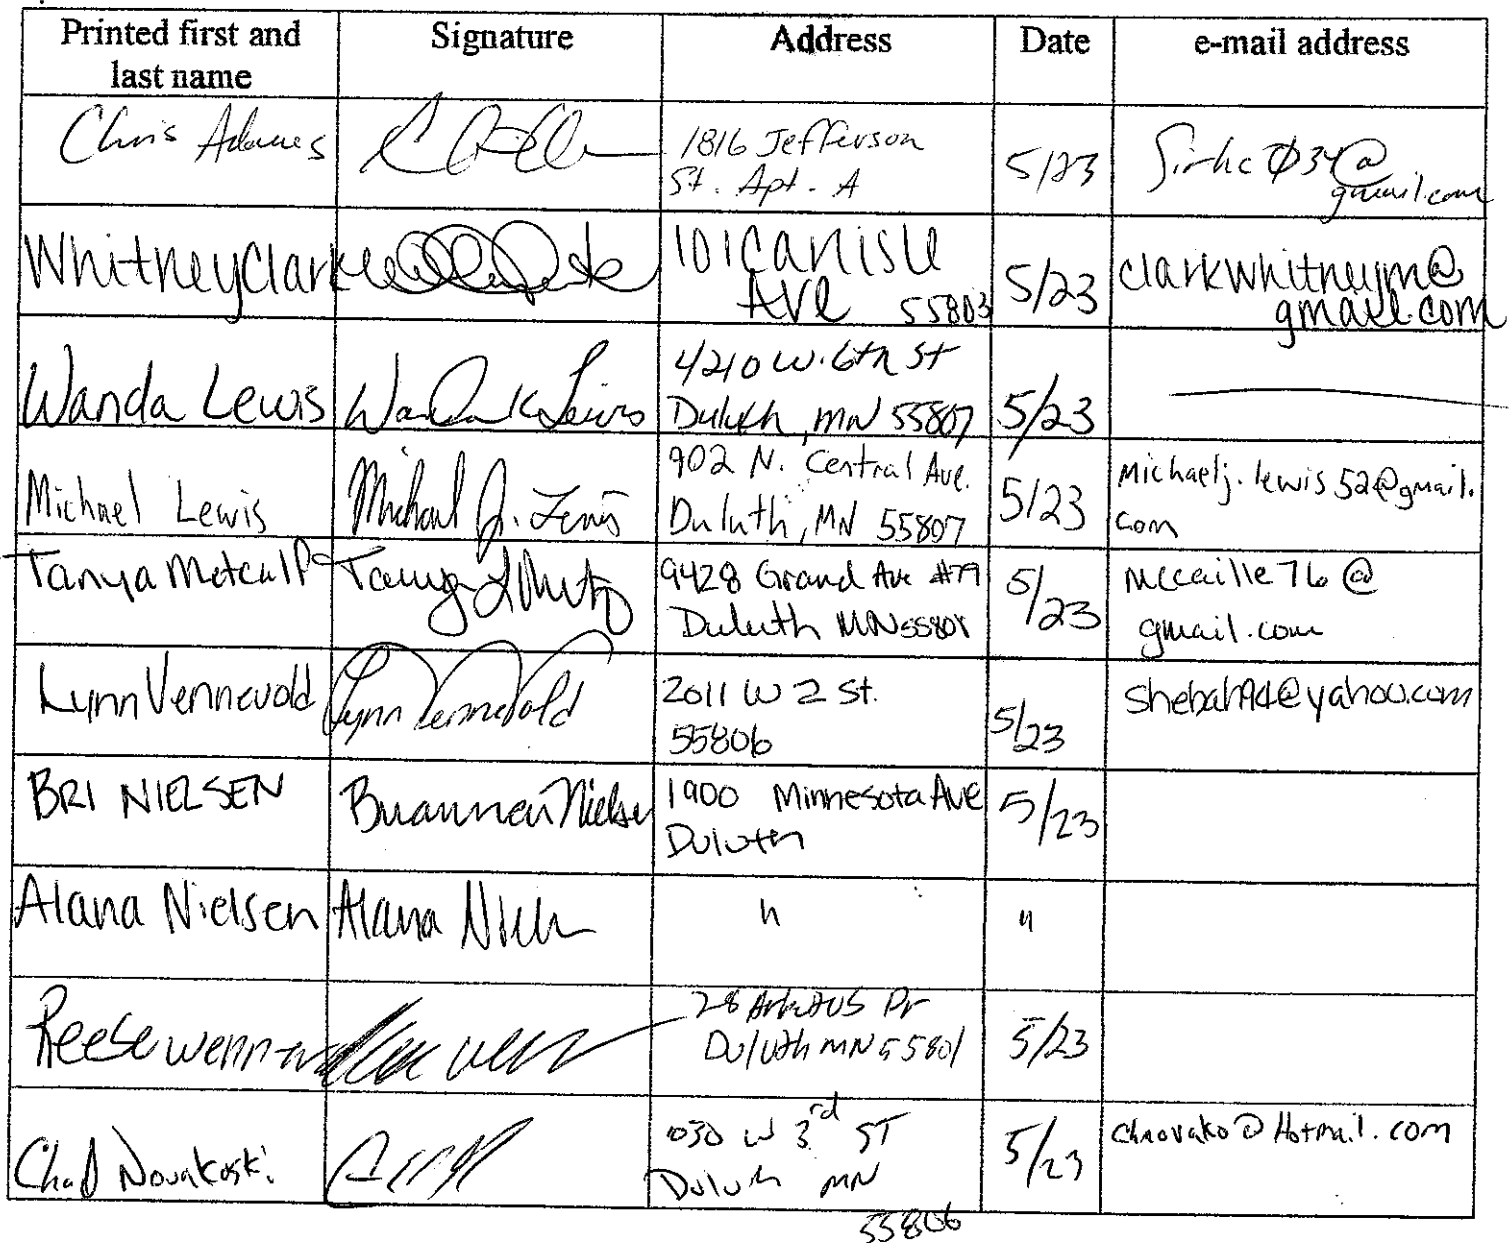 Printed first and last name Signature Address Date e-mail address
Chris Adames 1816 Jefferson St. Apt. A 5/23 @gmail.com
Whitney Clark 101 Carlisle Ave 55803 5/23 clarkwhitneym@gmail.com
Wanda Lewis Wanda K Lewis 4210 W. 6th St Duluth, MN 55807 5/23
Michael Lewis Michael J. Lewis 902 N. Central Ave. Duluth, MN 55807 5/23 michaelj.lewis52@gmail.com
Tanya Metcalf Tanya 9428 Grand Ave #79 Duluth MN 55808 5/23 mccaille76@gmail.com
Lynn Vennevold Lynn Vennevold 2011 W 2 St. 55806 5/23 shebah94@yahoo.com
BRI NIELSEN Brianna Nielsen 1900 Minnesota Ave Duluth 5/23
Alana Nielsen Alana Nielsen " "
Reese 28 Dr Duluth MN 55801 5/23
Chad Novakoski 1030 W 3rd ST Duluth MN 55806 5/23 chnovako@Hotmail.com